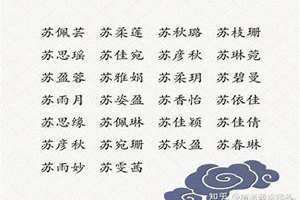 苏佩芸 苏柔莲 苏秋璐 苏枝珊
苏思瑶 苏佳宛 苏彦秋 苏琳菀
苏盈蓉 苏雅娟 苏采玥 苏碧曼
苏雨月 苏姿盈 苏香怡 苏依佳
苏思缘 苏佩琳 苏佳颖 苏佳倩
苏彦秋 苏宛珊 苏秋盈 苏春琳
苏雨妙 苏雯茜
知乎